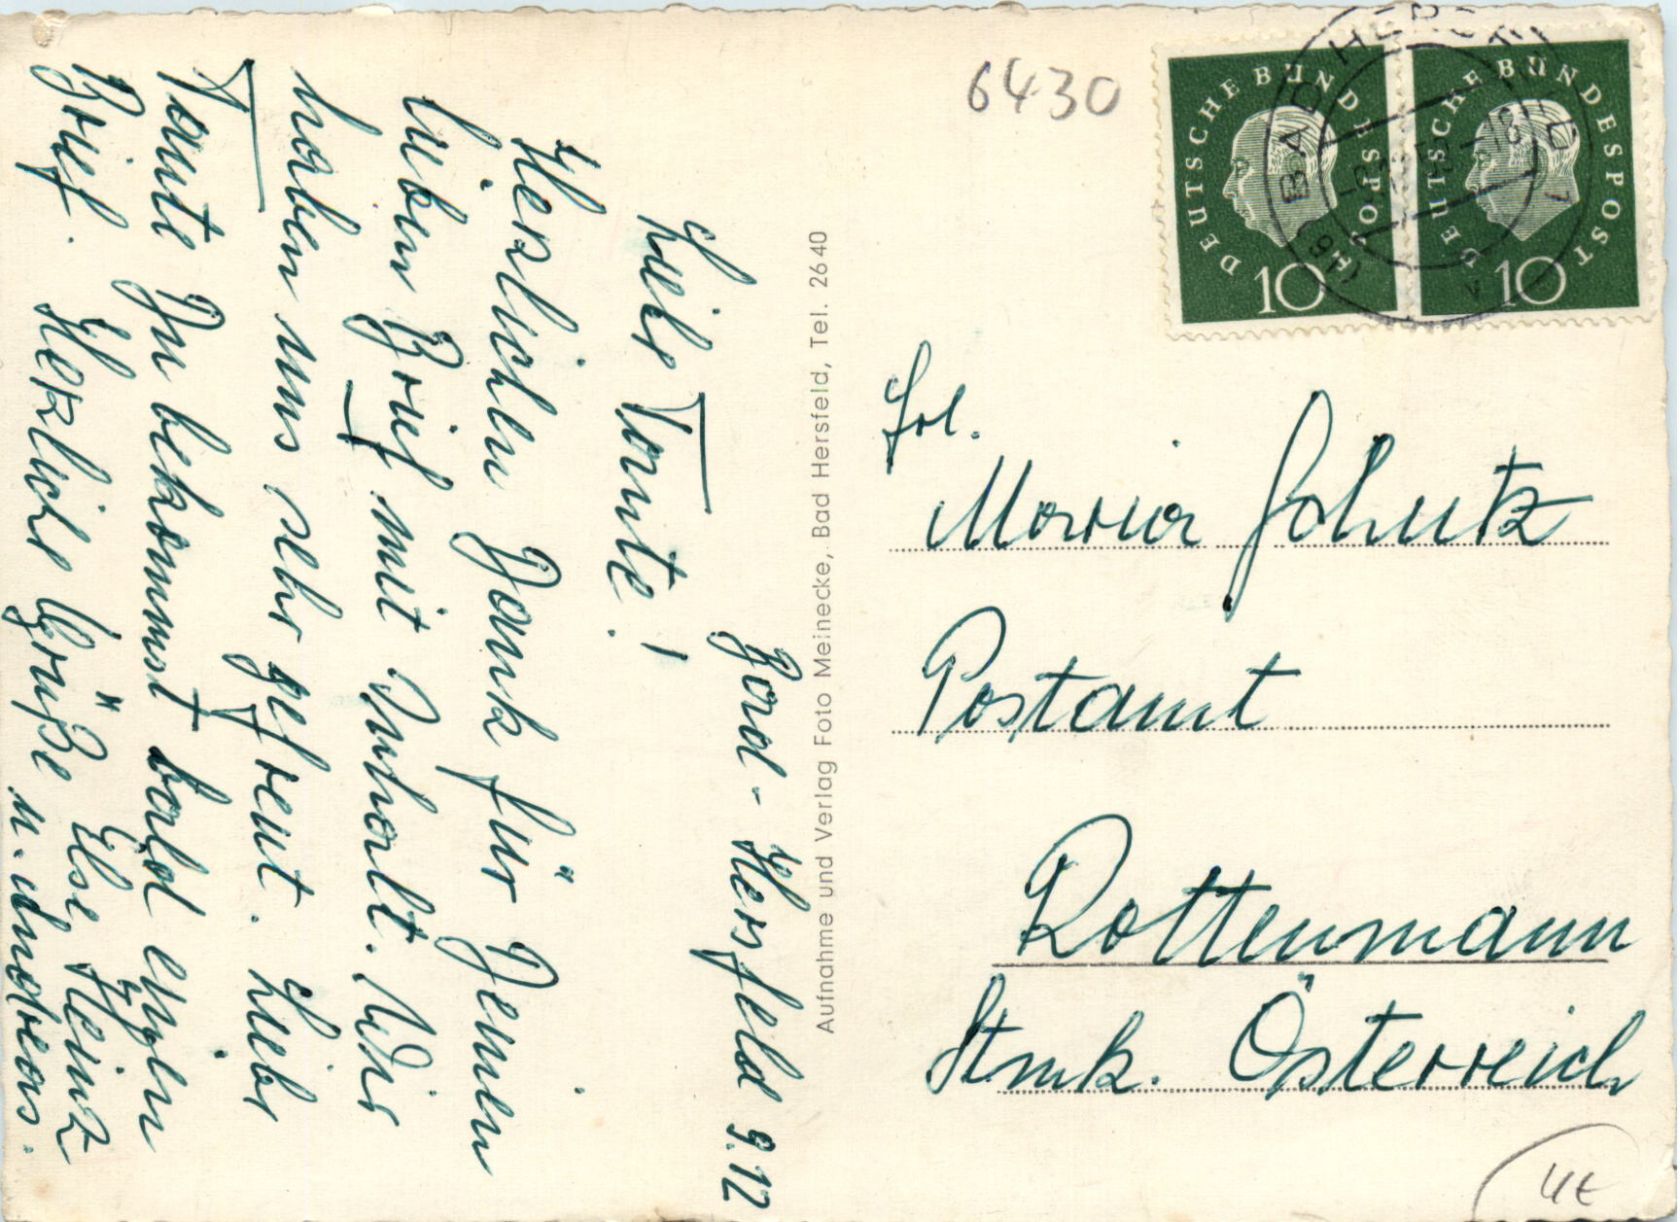 Bad-Hersfeld 9.12
Liebe Tante!
Herzlichen Dank für Deinen
lieben Brief mit Inhalt. Wir
haben uns sehr gefreut. Liebe
Tante Du bekommst bald einen
Brief. Herzliche Grüße Ilse, Heinz
u. Andreas.
Aufnahme und Verlag Foto Meinecke, Bad Hersfeld, Tel. 2640
6430
DEUTSCHE BUNDESPOST
10
DEUTSCHE BUNDESPOST
10
(16) BAD HERSFELD
Frl.
Maria Schutz
Postamt
Rottenmann
Stmk. Österreich
4E